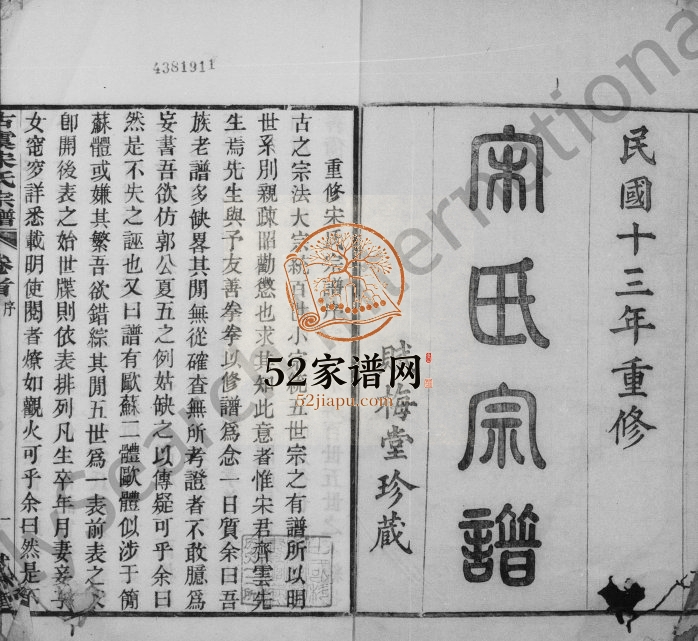 4381911
民國十三年重修
宋氏宗譜
賦梅堂珍藏
重修宋氏宗譜序
古之宗法大宗統百世小宗統五世宗之有譜所以明
世系別親疎昭勸懲也求其知此意者惟宋君齊雲先
生焉先生與予友善拳拳以修譜爲念一日質余曰吾
族老譜多缺畧其閒無從確查無所考證者不敢臆爲
妄書吾欲仿郭公夏五之例姑缺之以傳疑可乎余曰
然是不失之誣也又曰譜有歐蘇二體歐體似涉于簡
蘇體或嫌其繁吾欲錯綜其閒五世爲一表前表之末
卽開後表之始世牒則依表排列凡生卒年月妻妾子
女窀穸詳悉載明使閱者燎如觀火可乎余曰然是
古虞宋氏宗譜
卷首
序
一
52家谱网
52jiapu.com